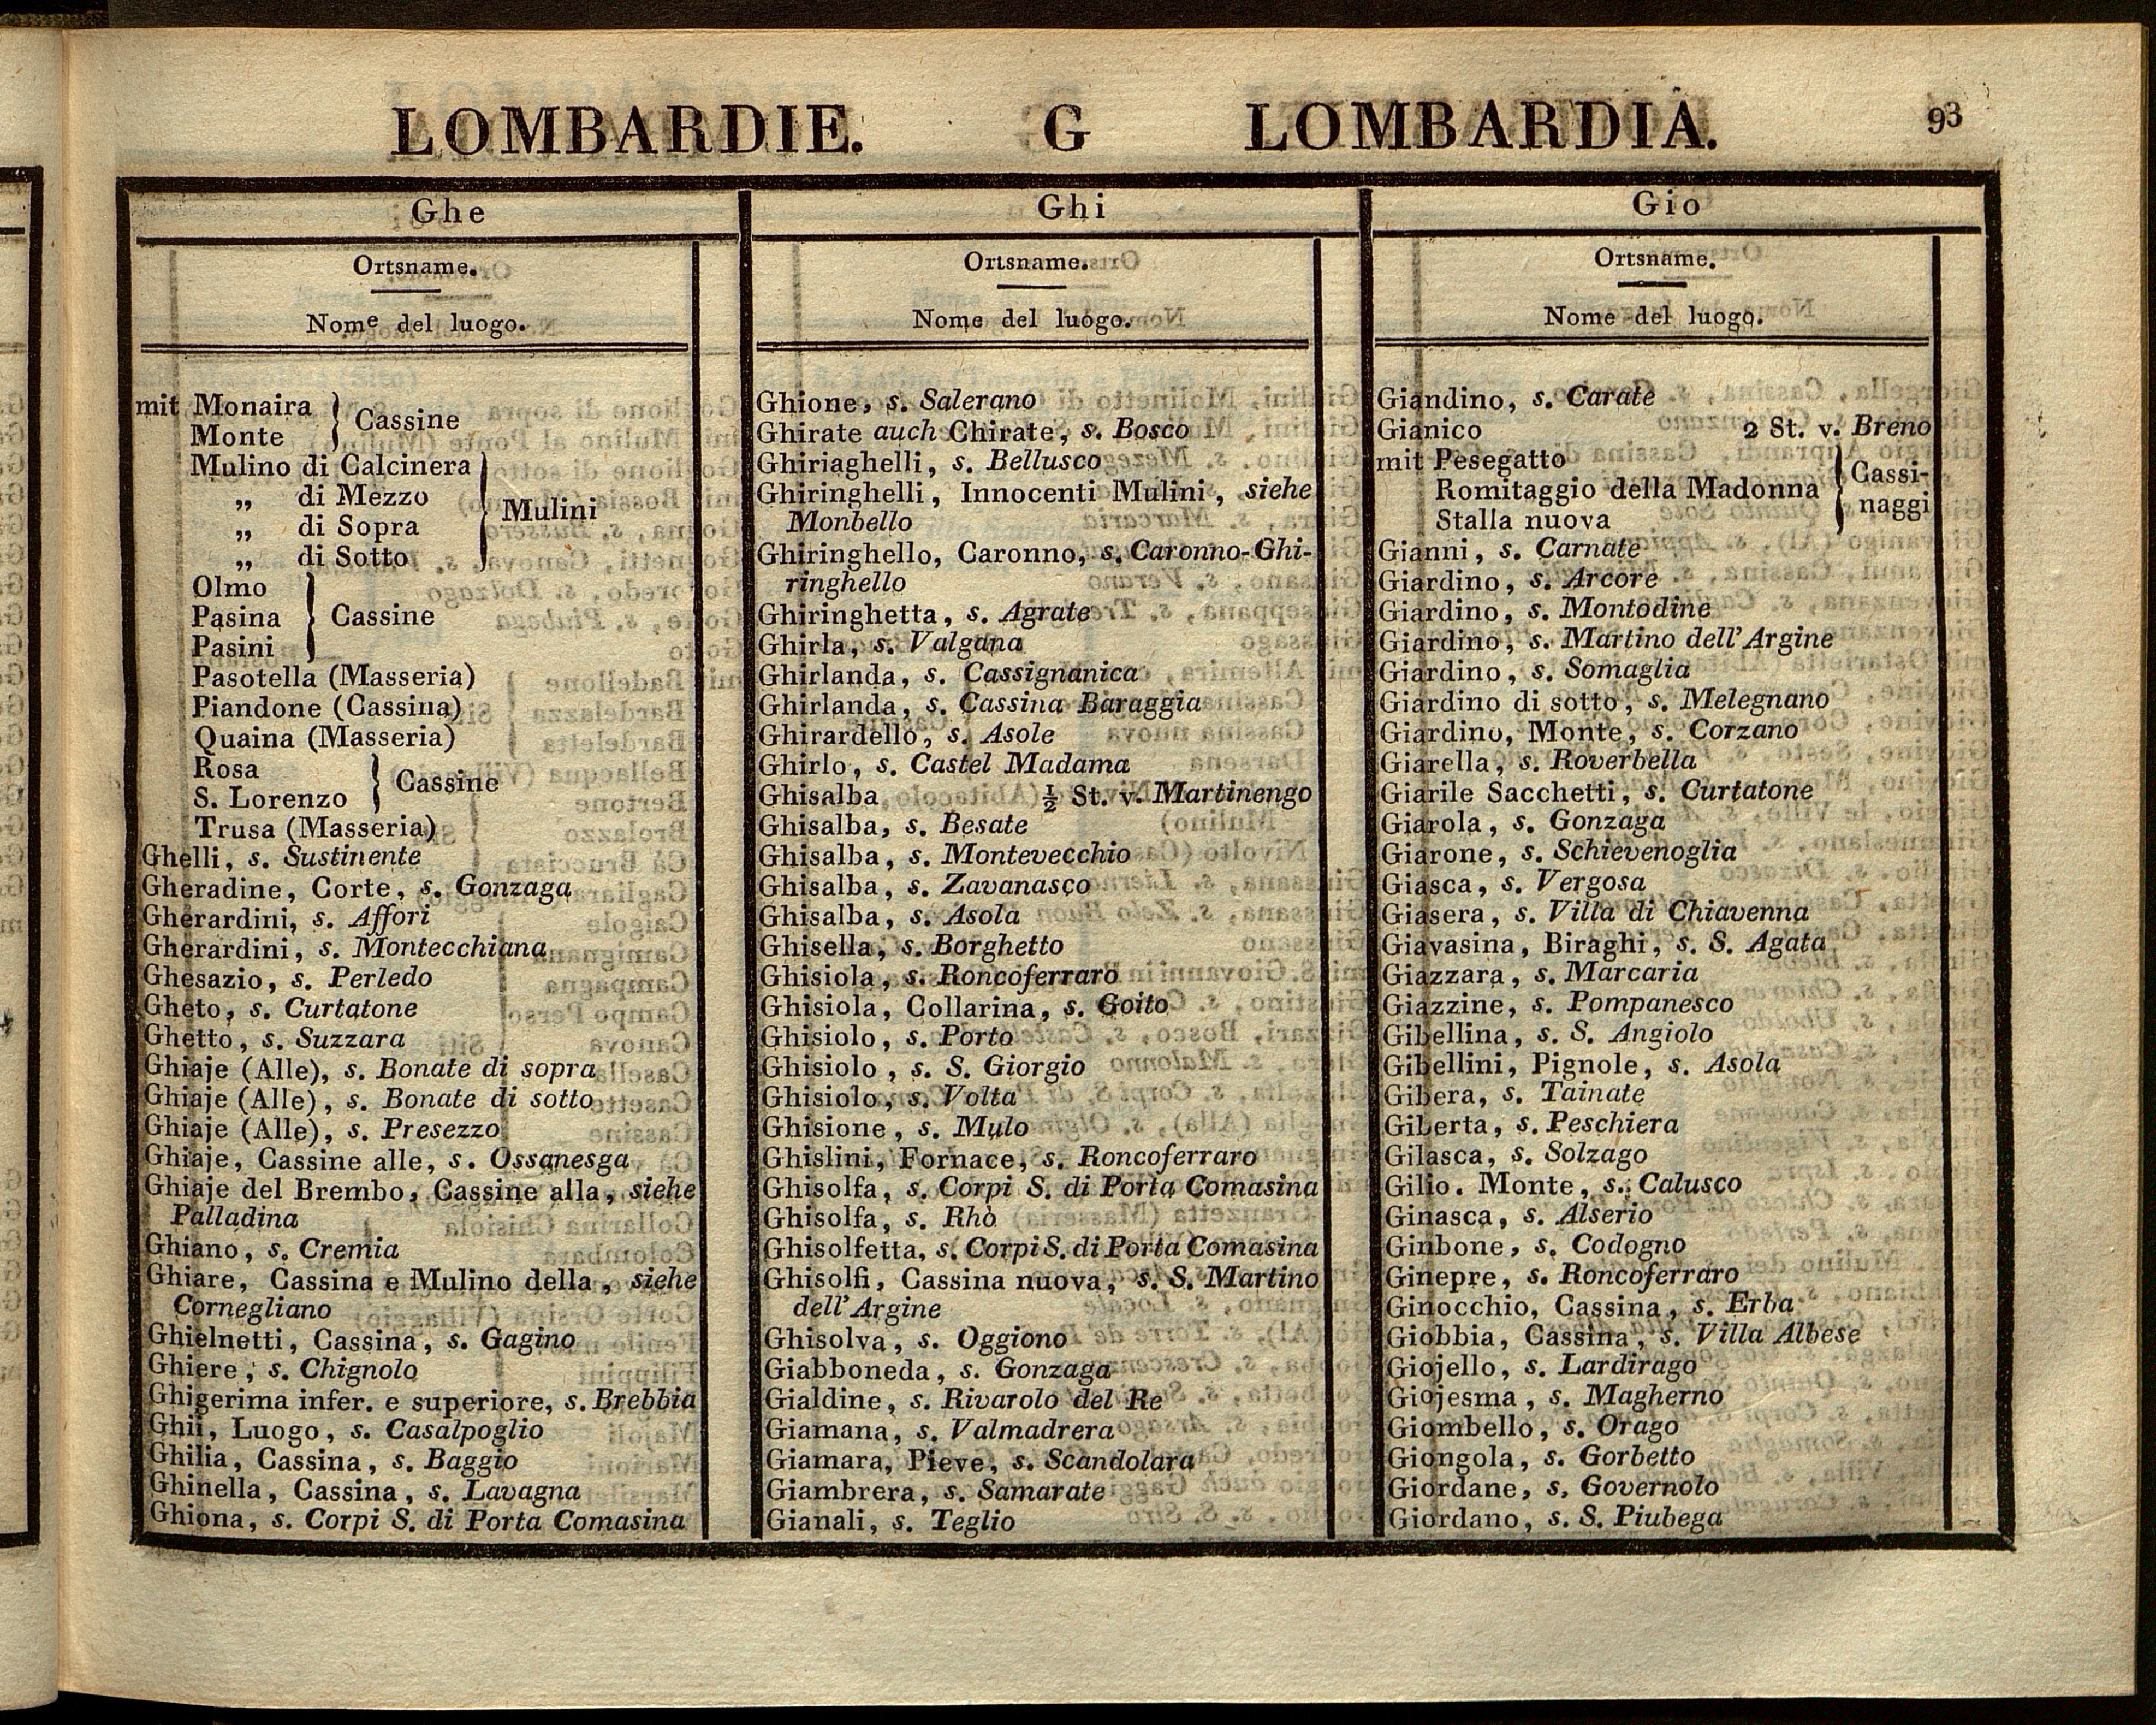 LOMBARDIE. G LOMBARDIA. 93
Ghe
Ortsname.
Nome del luogo.
mit Monaira } Cassine
Monte
Mulino di Calcinera } Mulini
„ di Mezzo
„ di Sopra
„ di Sotto
Olmo
Pasina } Cassine
Pasini
Pasotella (Masseria)
Piandone (Cassina)
Quaina (Masseria)
Rosa } Cassine
S. Lorenzo
Trusa (Masseria)
Ghelli, s. Sustinente
Gheradine, Corte, s. Gonzaga
Gherardini, s. Affori
Gherardini, s. Montecchiana
Ghesazio, s. Perledo
Gheto, s. Curtatone
Ghetto, s. Suzzara
Ghiaje (Alle), s. Bonate di sopra
Ghiaje (Alle), s. Bonate di sotto
Ghiaje (Alle), s. Presezzo
Ghiaje, Cassine alle, s. Ossanesga
Ghiaje del Brembo, Cassine alla, siehe
Palladina
Ghiano, s. Cremia
Ghiare, Cassina e Mulino della, siehe
Cornegliano
Ghielnetti, Cassina, s. Gagino
Ghiere, s. Chignolo
Ghigerima infer. e superiore, s. Brebbia
Ghii, Luogo, s. Casalpoglio
Ghilia, Cassina, s. Baggio
Ghinella, Cassina, s. Lavagna
Ghiona, s. Corpi S. di Porta Comasina
Ghi
Ortsname.
Nome del luogo.
Ghione, s. Salerano
Ghirate auch Chirate, s. Bosco
Ghiriaghelli, s. Bellusco
Ghiringhelli, Innocenti Mulini, siehe
Monbello
Ghiringhello, Caronno, s. Caronno-Ghi-
ringhello
Ghiringhetta, s. Agrate
Ghirla, s. Valgana
Ghirlanda, s. Cassignanica
Ghirlanda, s. Cassina Baraggia
Ghirardello, s. Asole
Ghirlo, s. Castel Madama
Ghisalba ½ St. v. Martinengo
Ghisalba, s. Besate
Ghisalba, s. Montevecchio
Ghisalba, s. Zavanasco
Ghisalba, s. Asola
Ghisella, s. Borghetto
Ghisiola, s. Roncoferraro
Ghisiola, Collarina, s. Goito
Ghisiolo, s. Porto
Ghisiolo, s. S. Giorgio
Ghisiolo, s. Volta
Ghisione, s. Mulo
Ghislini, Fornace, s. Roncoferraro
Ghisolfa, s. Corpi S. di Porta Comasina
Ghisolfa, s. Rhò
Ghisolfetta, s. Corpi S. di Porta Comasina
Ghisolfi, Cassina nuova, s. S. Martino
dell' Argine
Ghisolva, s. Oggiono
Giabboneda, s. Gonzaga
Gialdine, s. Rivarolo del Re
Giamana, s. Valmadrera
Giamara, Pieve, s. Scandolara
Giambrera, s. Samarate
Gianali, s. Teglio
Gio
Ortsname.
Nome del luogo.
Giandino, s. Carate
Gianico 2 St. v. Breno
mit Pesegatto } Cassi-
Romitaggio della Madonna
Stalla nuova naggi
Gianni, s. Carnate
Giardino, s. Arcore
Giardino, s. Montodine
Giardino, s. Martino dell' Argine
Giardino, s. Somaglia
Giardino di sotto, s. Melegnano
Giardino, Monte, s. Corzano
Giarella, s. Roverbella
Giarile Sacchetti, s. Curtatone
Giarola, s. Gonzaga
Giarone, s. Schievenoglia
Giasca, s. Vergosa
Giasera, s. Villa di Chiavenna
Giavasina, Biraghi, s. S. Agata
Giazzara, s. Marcaria
Giazzine, s. Pompanesco
Gibellina, s. S. Angiolo
Gibellini, Pignole, s. Asola
Gibera, s. Tainate
Giberta, s. Peschiera
Gilasca, s. Solzago
Gilio. Monte, s. Calusco
Ginasca, s. Alserio
Ginbone, s. Codogno
Ginepre, s. Roncoferraro
Ginocchio, Cassina, s. Erba
Giobbia, Cassina, s. Villa Albese
Giojello, s. Lardirago
Giojesma, s. Magherno
Giombello, s. Orago
Giongola, s. Gorbetto
Giordane, s. Governolo
Giordano, s. S. Piubega